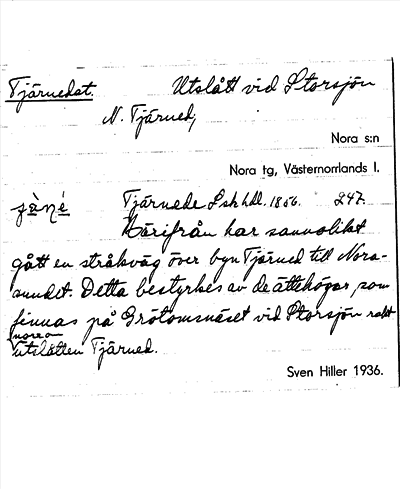 Tjärnedet. Utslått vid Storsjön
N. Tjärned,
Nora s:n
Nora tg, Västernorrlands l.
Tjärnede Lskhdl. 1856. 247.
Härifrån har sannolikt
gått en stråkväg över byn Tjärned till Nora-
sundet. Detta bestyrkes av de ättehögar, som
finnas på Grötomsnäset vid Storsjön rakt
norr om
utslåtten Tjärned.
Sven Hiller 1936.